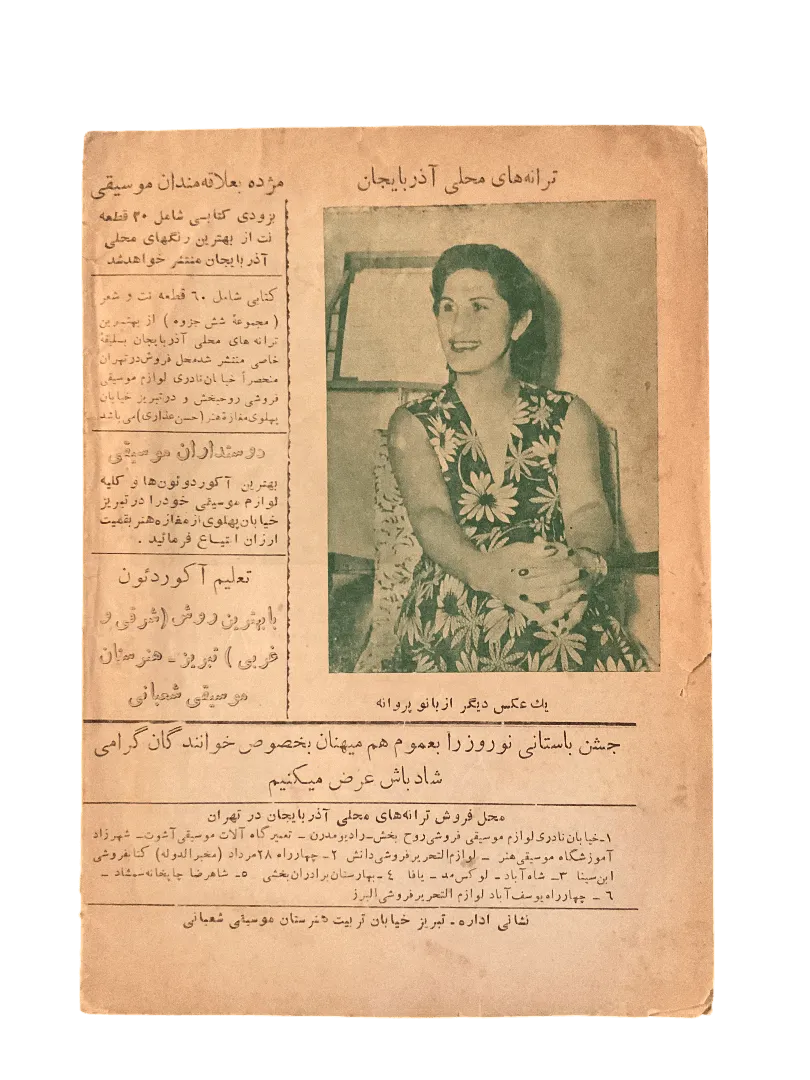 ترانه‌های محلی آذربایجان
مژده بعلاقه‌مندان موسیقی
بزودی کتابی شامل ۳۰ قطعه
نت از بهترین رنگهای محلی
آذربایجان منتشر خواهد شد
کتابی شامل ٦٠ قطعه نت و شعر
( مجموعهٔ شش جزوه ) از بهترین
ترانه های محلی آذربایجان بسلیقهٔ
خاصی منتشر شده محل فروش در تهران
منحصراً خیابان نادری لوازم موسیقی
فروشی روحبخش و در تبریز خیابان
پهلوی مغازهٔ هنر (حسن عذاری) می باشد
دوستداران موسیقی
بهترین آکوردئون‌ها و کلیه
لوازم موسیقی خود را در تبریز
خیابان پهلوی از مغازه هنر بقمیت
ارزان ابتیاع فرمائید .
تعلیم آکوردئون
با بهترین روش (شرقی و
غربی ) تبریز ـ هنرستان
موسیقی شعبانی
یك عکس دیگر از بانو پروانه
جشن باستانی نوروز را بعموم هم میهنان بخصوص خوانندگان گرامی
شادباش عرض میکنیم
محل فروش ترانه‌های محلی آذربایجان در تهران
۱ـ خیابان نادری لوازم موسیقی فروشی روح بخش ـ رادیو مدرن ـ تعمیرگاه آلات موسیقی آشوت ـ شهرزاد
آموزشگاه موسیقی هنر ـ لوازم‌التحریر فروشی دانش ۲ـ چهارراه ۲۸ مرداد (مخبرالدوله) کتابفروشی
ابن سینا ۳ـ شاه‌آباد ـ لوکس مد ـ یافا ٤ـ بهارستان برادران بخشی ٥ـ شاهرضا چاپخانه سمشاد ـ
٦ ـ چهارراه یوسف آباد لوازم التحریر فروشی البرز
نشانی اداره ـ تبریز خیابان تربیت هنرستان موسیقی شعبانی